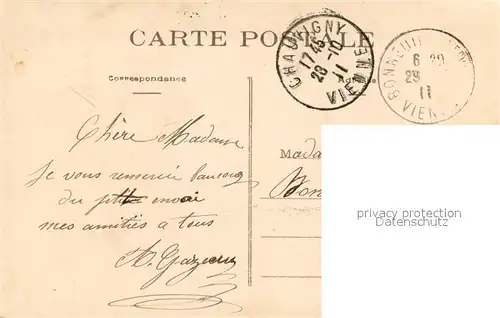 CARTE POSTALE
CHAUVIGNY
17 45
28 -10
11
VIENNE
BONNEUIL
6
29
11
VIENNE
Correspondance
Chère Madame
Je vous remercie beaucoup
du petit envoi
mes amitiés a tous
Mada
Bon
privacy protection
Datenschutz